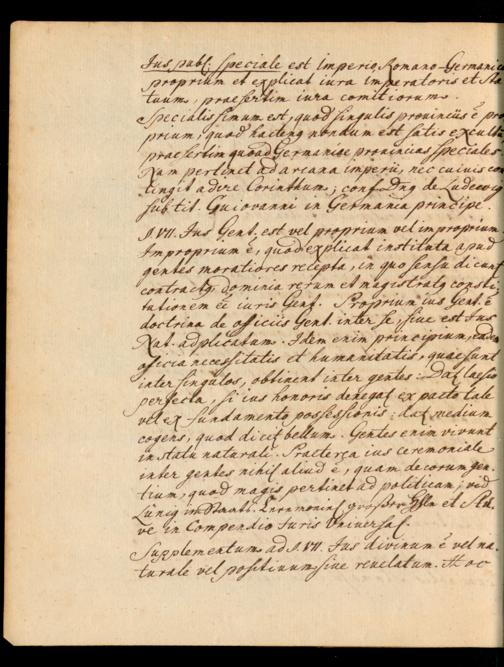 Jus publ. speciale est imperio Romano-Germanico
proprium et explicat iura imperatoris et Sta
tuum, praesertim iura comitiorum.
Specialissimum est, quod singulis provinciis ē pro
prium, quod hacteng nondum est satis excult
praesertim quoad Germaniae provincias speciales
Nam pertinet ad arcana imperii, nec cuivis con
tingit adire Corinthum; conf. Dng de Ludewig
sub tit. Guiovanni in Germania principe
§. VII. Jus Gent. est vel proprium vel improprium
Improprium ē, quod explicat instituta apud
gentes moratiores recepta, in quo sensu dicunt
contractg, dominia rerum et magistratg consti
tutionem eē iuris Gent. Proprium ius Gent. ē
doctrina de officiis Gent. inter se, sive est Jus
Nat. adplicatum. Idem enim principium, eadem
officia necessitatis et humanitatis, quae sunt
inter singulos, obtinent inter gentes: Dat laesio
perfecta, si ius honoris denegat ex pacto tale
vel ex fundamento possessionis: dat medium
cogens, quod dicit bellum. Gentes enim vivunt
in statu naturali. Praeterea ius ceremoniale
inter gentes nihil aliud ē, quam decorum gen
tium, quod magis pertinet ad politicam; vid
Lünig in Staats-Ceremoniel et
ve in Compendio Juris Universal.
Supplementum ad §. VII. Jus divinum ē vel na
turale vel positivum sive revelatum. Hoc